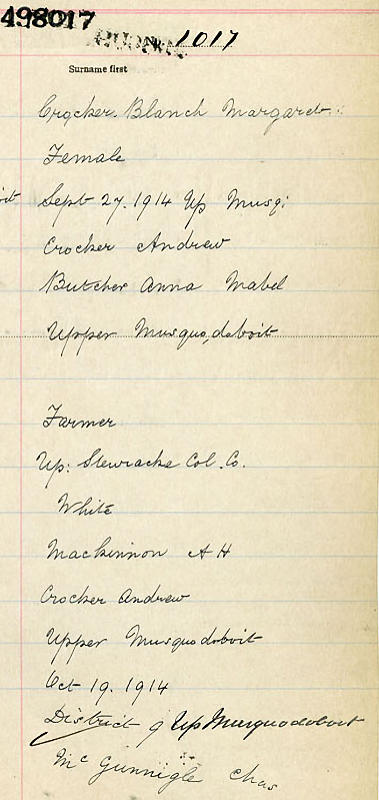 498017
1017
Surname first
Crocker. Blanch Margaret.
Female
Sept 27. 1914 Up Musq:
Crocker Andrew
Butcher Anna Mabel
Upper Musquodoboit
Farmer
Up: Stewiacke Col. Co.
White
Mackinnon A H
Crocker Andrew
Upper Musquodoboit
Oct 19. 1914
District 9 Up Musquodoboit
Mc Gunnigle Chas